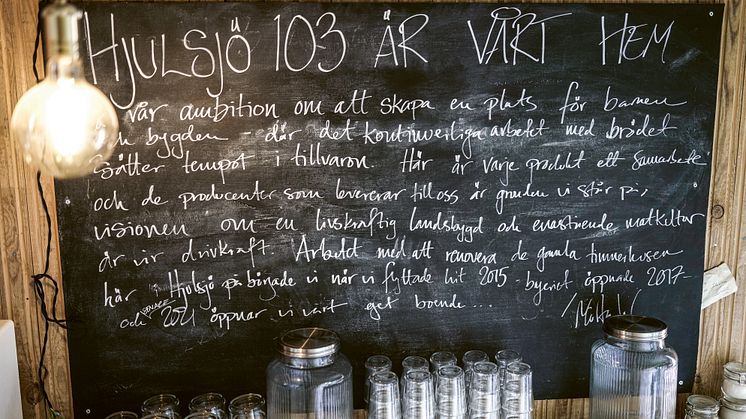 HJULSJÖ 103 ÄR VÅRT HEM
vår ambition om att skapa en plats för barnen
och bygden - där det kontinuerliga arbetet med brödet
sätter tempot i tillvaron. Här är varje produkt ett samarbete
och de producenter som levererar till oss är grunden vi står på,
visionen om en livskraftig landsbygd och enastående matkultur
är vår drivkraft. Arbetet med att renovera de gamla timmerhusen
här i Hjulsjö påbörjade vi när vi flyttade hit 2015 - byeriet öppnade 2017-
och 2021 öppnar vi vårt eget boende...